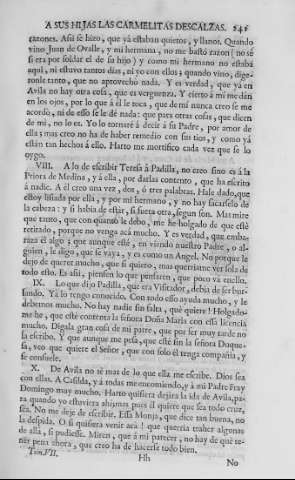 A SUS HIJAS LAS CARMELITAS DESCALZAS. 241
razones. Assi se hizo, que yá estaban quietos, y llanos. Quando
vino Juan de Ovalle, y mi hermana, no me bastó razon (no sé
si era por soldar el de su hijo) y como mi hermano no estaba
aqui, ni estuvo tantos dias, ni yo con ellos; quando vino, dige-
ronle tanto, que no aprovechó nada. Y es verdad, que yá en
Avila no hay otra cosa, que es verguenza. Y cierto á mi me dán
en los ojos, por lo que á él le toca, que de mi nunca creo se me
acordó, ni de esso se le dé nada: que para otras cosas, que dicen
de mi, no lo es. Yo lo tornaré á decir á su Padre, por amor de
ella; mas creo no ha de haber remedio con sus tios, y como yá
están tan hechos á ello. Harto me mortifico cada vez que se lo
oygo.
VIII. A lo de escribir Teresa á Padilla, no creo sino es á la
Priora de Medina, y á ella, por darlas contento, que ha escrito
á nadie. A él creo una vez, dos, ó tres palabras. Hale dado, que
estoy lisiada por ella, y por mi hermano, y no hay sacarselo de
la cabeza: y si habia de estár, si fuera otro, segun son. Mas mire
que tanto, que con quanto le debo, me he holgado de que esté
retirado, porque no venga acá mucho. Y es verdad, que emba-
raza él algo; que aunque esté, en viendo nuestro Padre, o al-
guien, le digo, que se vaya, y es como un Angel. No porque le
dejo de querer mucho, que si quiero, mas querriame ver sola de
todo esso. Es assi, piensen lo que pensaren, que poco vá en ello.
IX. Lo que dijo Padilla, que era Visitador, debia de ser bur-
lando. Yá lo tengo conocido. Con todo esso ayuda mucho, y le
debemos mucho. No hay nadie sin falta, qué quiere! Holgado-
me he, que esté contenta la señora Doña Maria con essa licencia
mucho. Digala gran cosa de mi parte, que por ser muy tarde no
la escribo. Y que aunque me pesa, que esté sin la señora Duque-
sa, veo que quiere el Señor, que con solo él tenga compañia, y
se consuele.
X. De Avila no sé mas de lo que ella me escribe. Dios sea
con ellas. A Casilda, y á todas me encomiendo, y á mi Padre Fray
Domingo muy mucho. Harto quisiera dejira la ida de Avila, pa-
ra quando yo estuviera ahi; mas pues él quiere que sea todo cruz,
sea. No me deje de escribir. Essa Monja, que dice tan buena, no
la despida. O si quisiera venir acá! que querria traher algunas
de allá, si pudiesse. Miren, que á mi parecer, no hay de qué te-
ner pena ahora, que creo ha de hacerse todo bien.
Tom.VII. Hh No